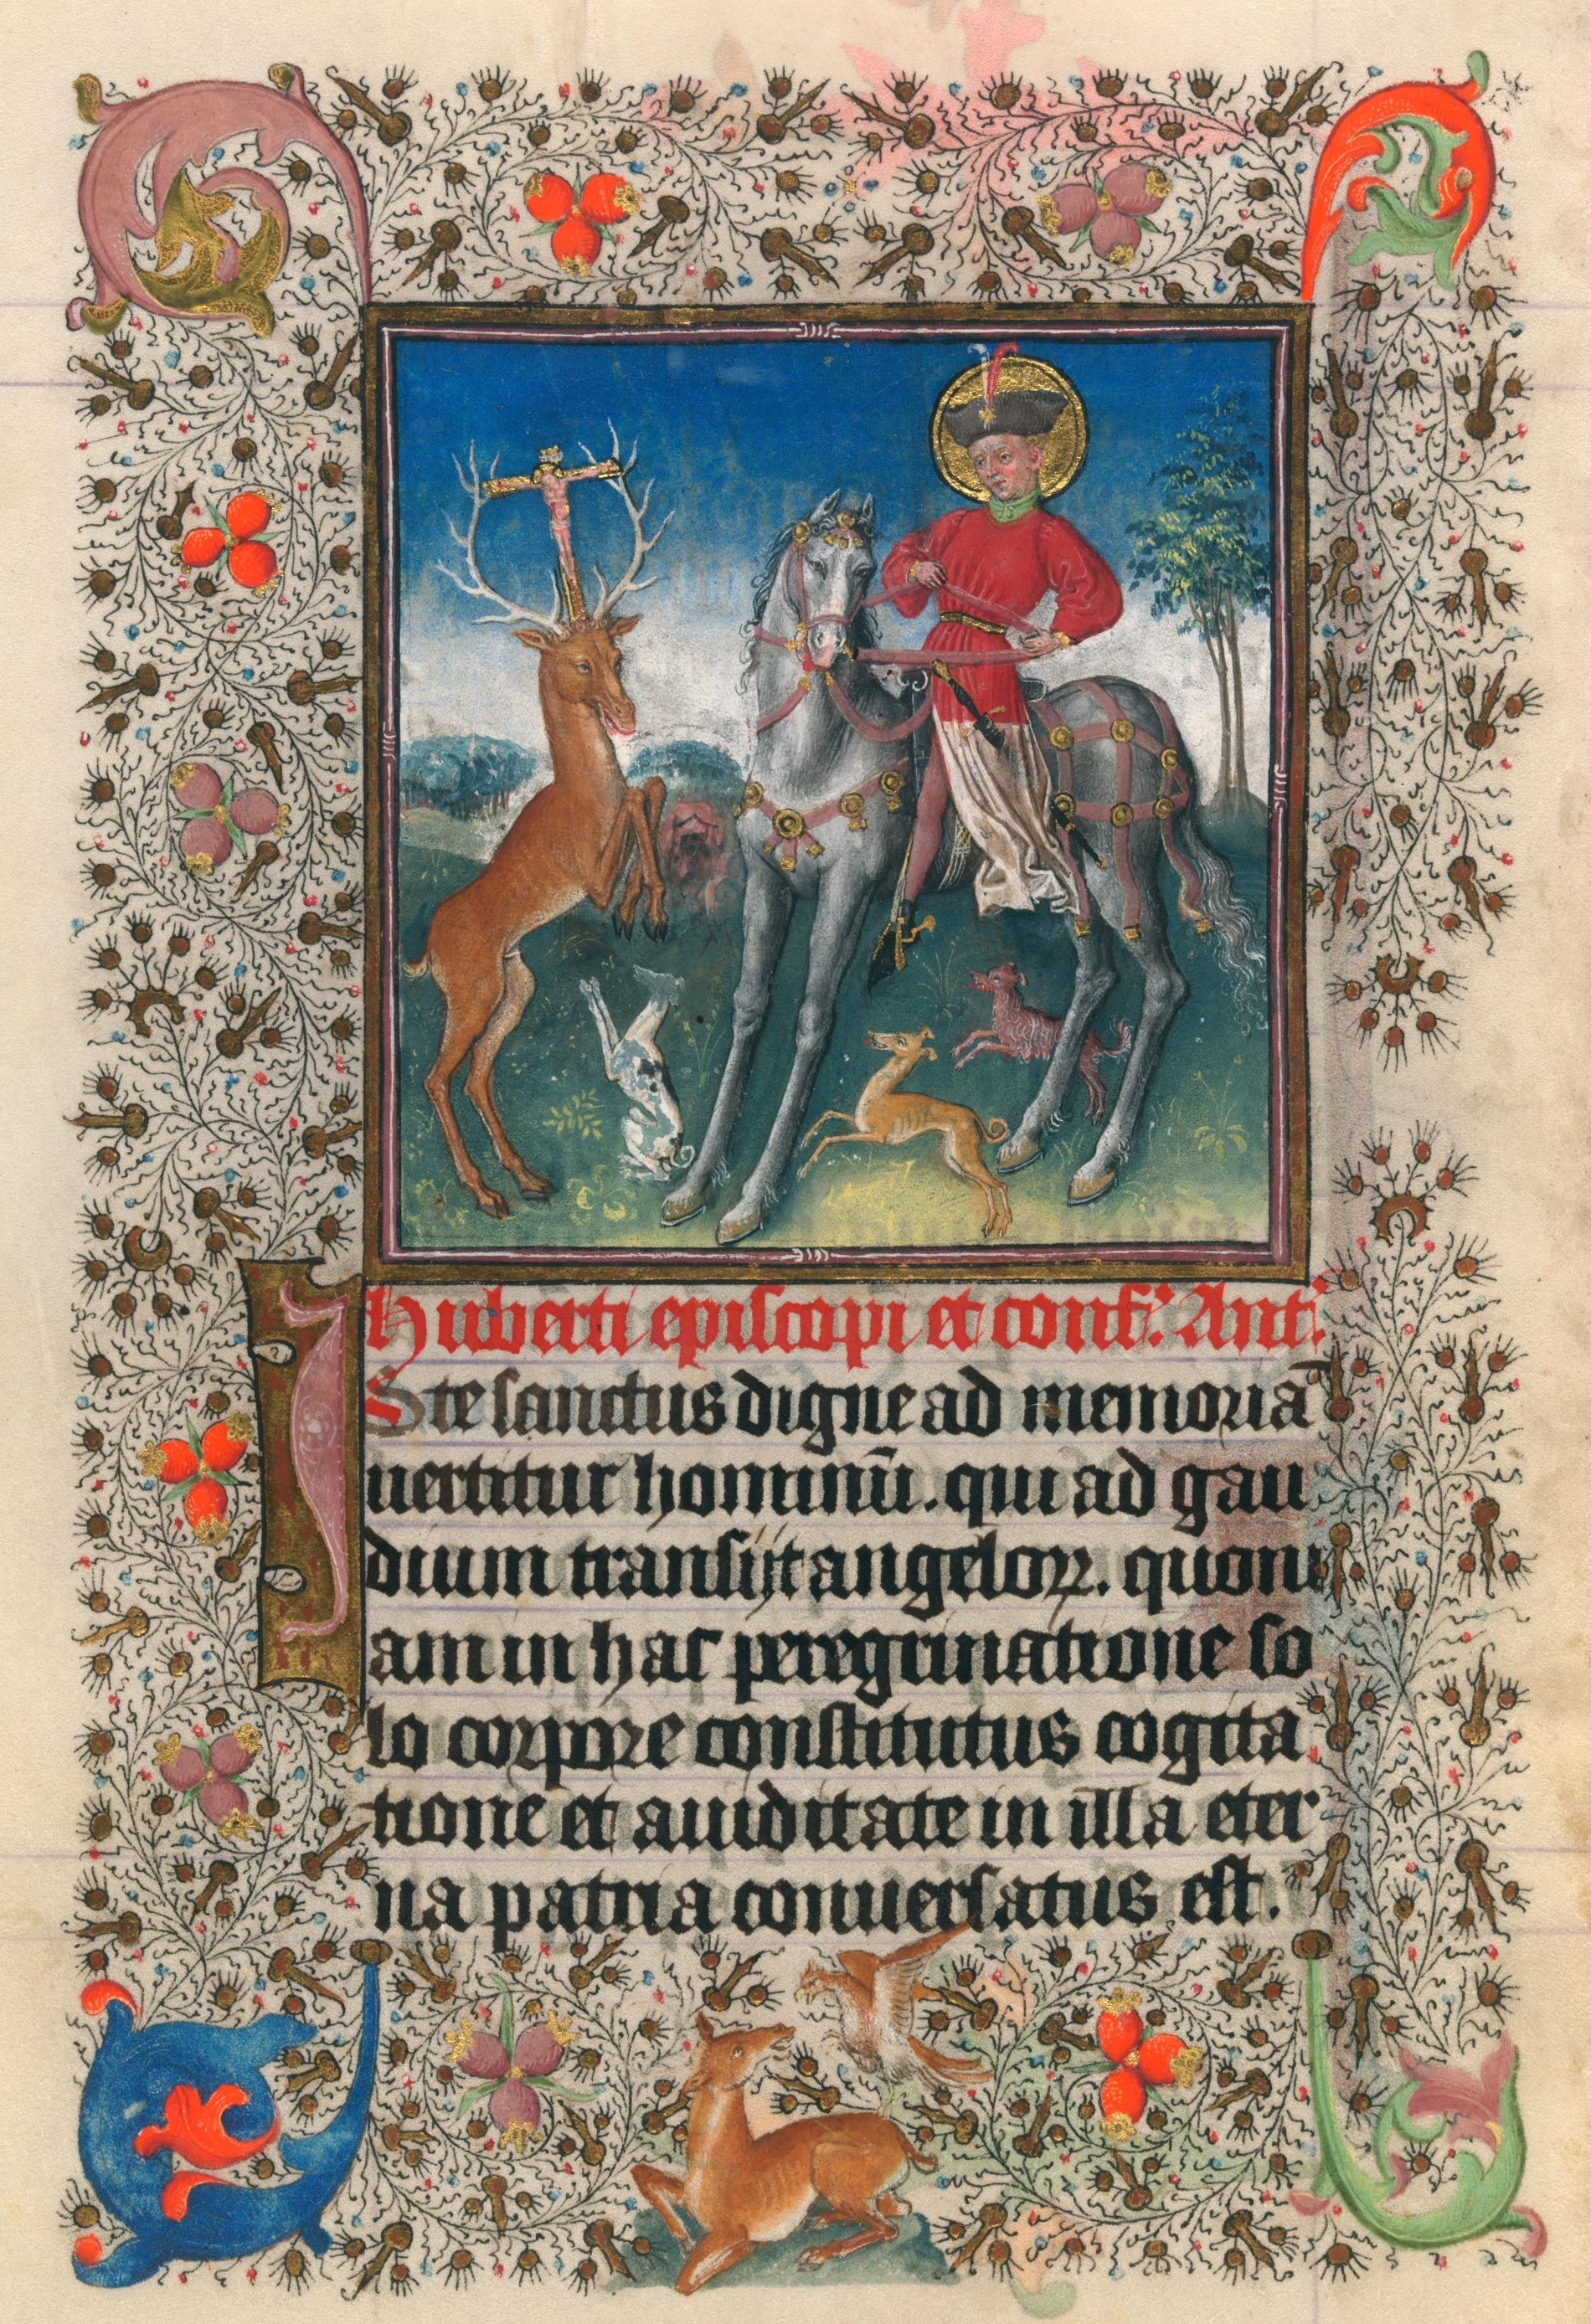 Huberti episcopi et conf. Ant.
Iste sanctus digne ad memoriā
uertitur hominū. qui ad gau
dium transijt angeloꝝ. quoni
am in hac peregrinatione so
lo corpore constitutus cogita
tione et auiditate in illa eter
na patria conuersatus est.